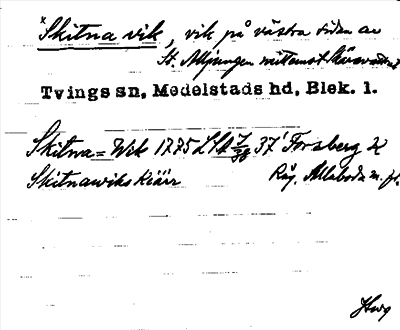 *Skitna vik, vik på västra sidan av
St. Alljungen mittemot
Tvings sn, Medelstads hd, Blek. l.
Skitna=Wik 1775 LSA 37' Forsberg
Skitnawiks Kiärr Råg. Allaboda m. fl.